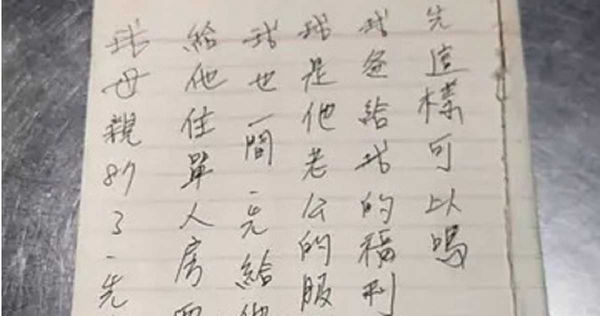 我母親87了、先
給他住單人房
我也一間、先給他
我是他老公的服
我爸給我的福利
先這樣可以嗎